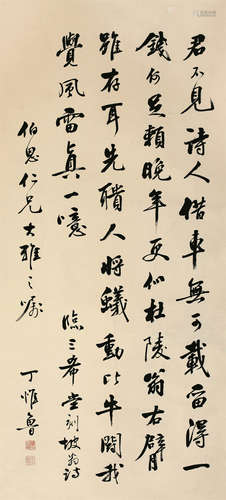 君不見詩人借車無可載留得一
錢何足賴晚年更似杜陵翁右臂
雖存耳先聵人將蟻動比牛鬪我
覺風雷真一噫
臨三希堂刻坡翁詩
伯思仁兄大雅之嘱
丁惟魯